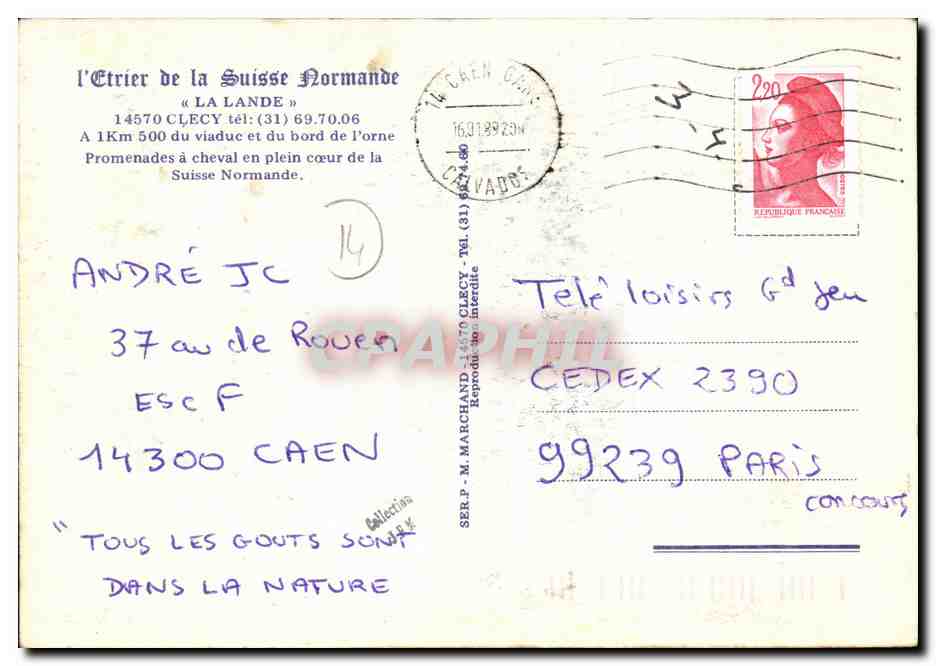 l'Etrier de la Suisse Normande
« LA LANDE »
14570 CLECY tél: (31) 69.70.06
A 1Km 500 du viaduc et du bord de l'orne
Promenades à cheval en plein cœur de la
Suisse Normande.
14 CAEN GARE
CALVADOS
2,20
REPUBLIQUE FRANCAISE
14
ANDRÉ JC
37 av de Rouen
ESC F
14300 CAEN
" TOUS LES GOUTS SONT
DANS LA NATURE
Collection
SER.P - M. MARCHAND - 14570 CLECY - Tél. (31) 69.74.60
Reproduction interdite
Télé loisirs Gd jeu
CEDEX 2390
99239 PARIS
concours
CPAPHIL